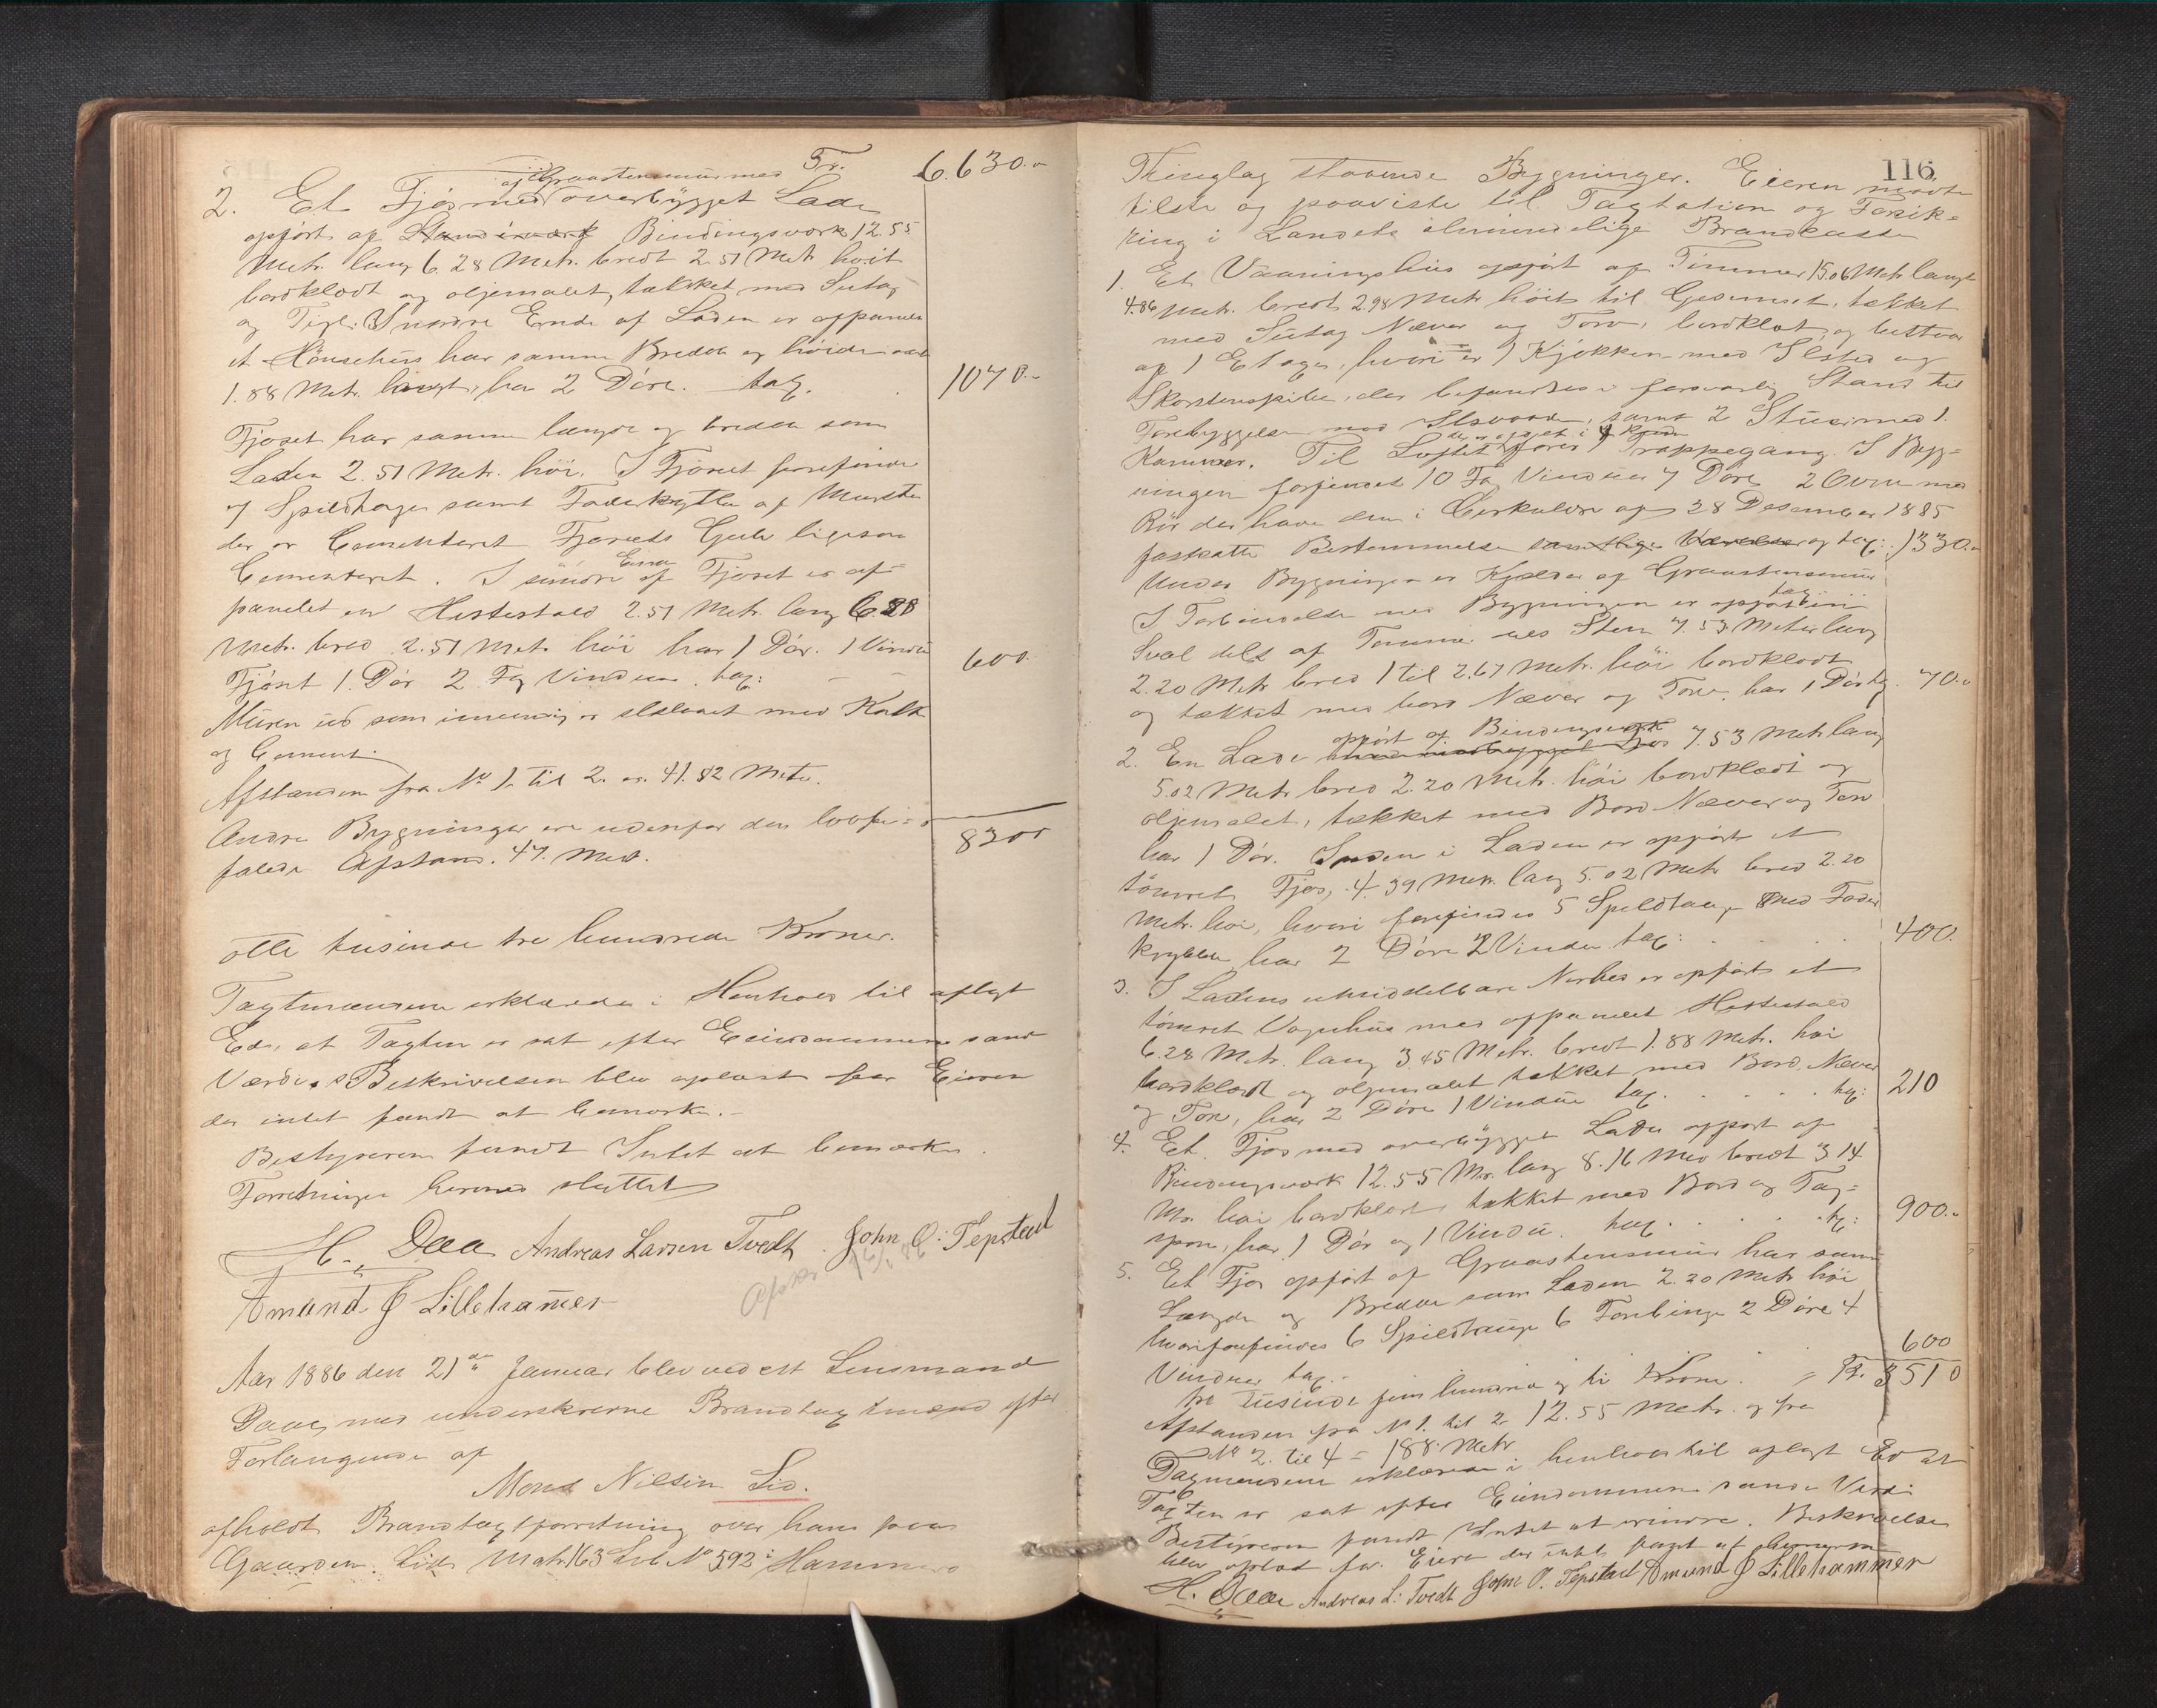 Tr. 6.630.-
af Graastensmuur med
2. Et Fjøs med overbygget Lade
opført af Bindingsværk 12.55
Metr. lang 6.28 Metr. bredt 2.51 Metr høit
bordklædt og oljemalet, tækket med Sutag
og Tegl. I nordre Ende af Laden er afpanelet
et Hønsehus har samme Bredde og høide
1.88 Metr. langt, har 2 Døre. tax. 1070.-
Fjøset har samme længde og bredde som
Laden 2.51 Metr. høi. I Fjøset forefindes
7 Spildtouge samt Foderkrybber af Mursten
der er Cementeret Fjøsets Gulv ligesom
Cementeret. I søndre Ende af Fjøset er af-
panelet en Hestestald 2.51 Metr. lang 6.28
Metr. bred 2.51 Metr høi har 1 Dør. 1 Vindu
Fjøset 1 Dør 2 Fag Vinduer. tax: 600.
Muren ud som indvendig er afslaaet med Kalk
og Cement.
Afstanden fra No 1 til 2. er. 41.82 Metr.
Andre Bygninger ere udenfor den lovbe-
falede Afstand. 47. Met. 8300
otte tusinde tre hundrede Kroner.
Taxtmændene erklærede i Henhold til aflagt
Ed, at Taxten er sat efter Eiendommens sande
Værdi. Beskrivelsen blev oplæst for Eieren
der intet fandt at bemærke.-
Bestyreren fandt Intet at bemærke.
Forretningen hermed sluttet
H. Daae Andreas Larsen Tvedt. John O. Tepstad
Amund J Lillehammer
Afskr. 16/2 86
Aar 1886 den 21de Januar blev ved est Lensmand
Daae med underskrevne Brandtaxtmænd efter
Forlangende af
Mons Nilsen Lid.
afholdt Brandtaxtforretning over hans paa
Gaarden Lid Matr. 163 Lb No 592 i Hammers
116
Thinglag staaende Bygninger. Eieren mødte
tilstæ og paaviste til Taxtation og Forsik-
ring i Landets almindelige Brandcasse
1. Et Vaaningshus opført af Timmer 15.06 Metr langt
4.86 Metr. bredt 2.98 Metr høit til Gesimset, tækket
med Sutag Næver og Torv, bordklæt og bestaar
af 1 Etage, hvori er 1 Kjøkken med Ilsted og
Skorstenspibe, der befandtes i forsvarlig Stand til
Forebyggelse mod Ildsvaade, samt 2 Stuer med 1
Kammer. Til Loftet fører 1 Trappegang. I Byg-
ningen forfindes 10 Fag Vinduer 7 Døre 2 Ovne med
Rør der have den i Cirkulære af 28 Desember 1885
fastsatte Bestemmelse samtlige Værelser og tax: 1330.-
Under Bygningen er Kjælder af Graastensmuur
I Forbindelse med Bygningen er opført en
Sval delt af Tømmer ved Sten 7.53 Meter lang
2.20 Metr bred 1 til 2.67 Metr. høi bordklædt
og tækket med bord Næver og Torv, har 1 Dør tax. 70.-
opført af Bindingsværk
2. En Lade 7.53 Metr lang
5.02 Metr bred 2.20 Metr. høi bordklædt og
oljemalet, tækket med Bord Næver og Torv
har 1 Dør. Inden i Laden er opført et
tømret Fjøs, 4.39 Metr. lang 5.02 Metr bred 2.20
Metr. høi, hvori forefindes 5 Spildtaug med Foder
krybber har 2 Døre 2 Vindu tax: 400.
3. I Ladens umiddelbare Nærhed er opført et
tømret Vognhus med afpanelet Hestestald
6.28 Metr. lang 3.45 Metr. bredt 1.88 Metr. høi
bordklædt og oljemalet tækket med Bord, Næver
og Torv, har 2 Døre 1 Vindue tax. 210
4. Et Fjøs med overbygget Lade opført af
Bindingsværk 12.55 Mr. lang 8.16 Met bredt 3.14
Mr. høi bordklædt tækket med Bord og Tag-
spon, har 1 Dør og 1 Vindu. tax. 900.-
5. Et Fjøs opført af Graastensmuur har samme
Længde og Bredde som Laden 2.20 Metr høi
hvori forefindes 6 Spildtauge 6 Forebinge 2 Døre 4
Vinduer tax. 600
tre tusinde fem hundrede og ti Kroner. Kr. 3510
Afstanden fra No 1. til 2 12.55 Metr. og fra
No 2. til 4 = 188. Metr
Taxmændene erklærede i henhold til aflagt Ed at
Taxten er sat efter Eiendommens sande Værdi
Bestyreren fandt Intet at erindre. Beskrivelse
blev oplæst for Eieren der intet fandt at bemerke
H. Daae Andreas L. Tvedt John O. Tepstad Amund J Lillehammer